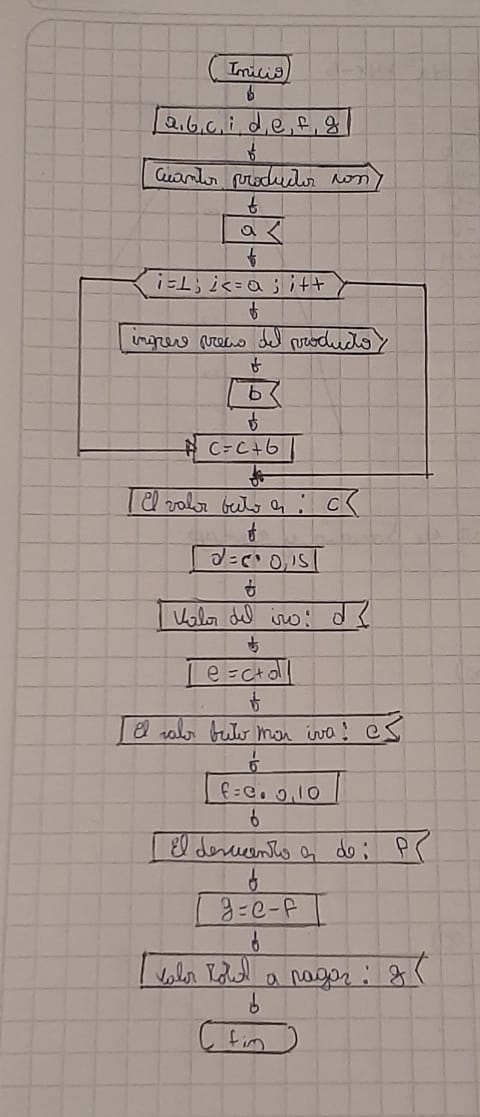 Inicio
a,b,c,i,d,e,f,g
Cuantos productos son
a
i=1; i<=a; i++
ingrese precio del producto
b
c=c+b
El valor buto es: c
d=c*0,15
Valor del iva: d
e=c+d
El valor buto mas iva: e
f=e*0,10
El descuento es de: f
g=e-f
Valor total a pagar: g
fin